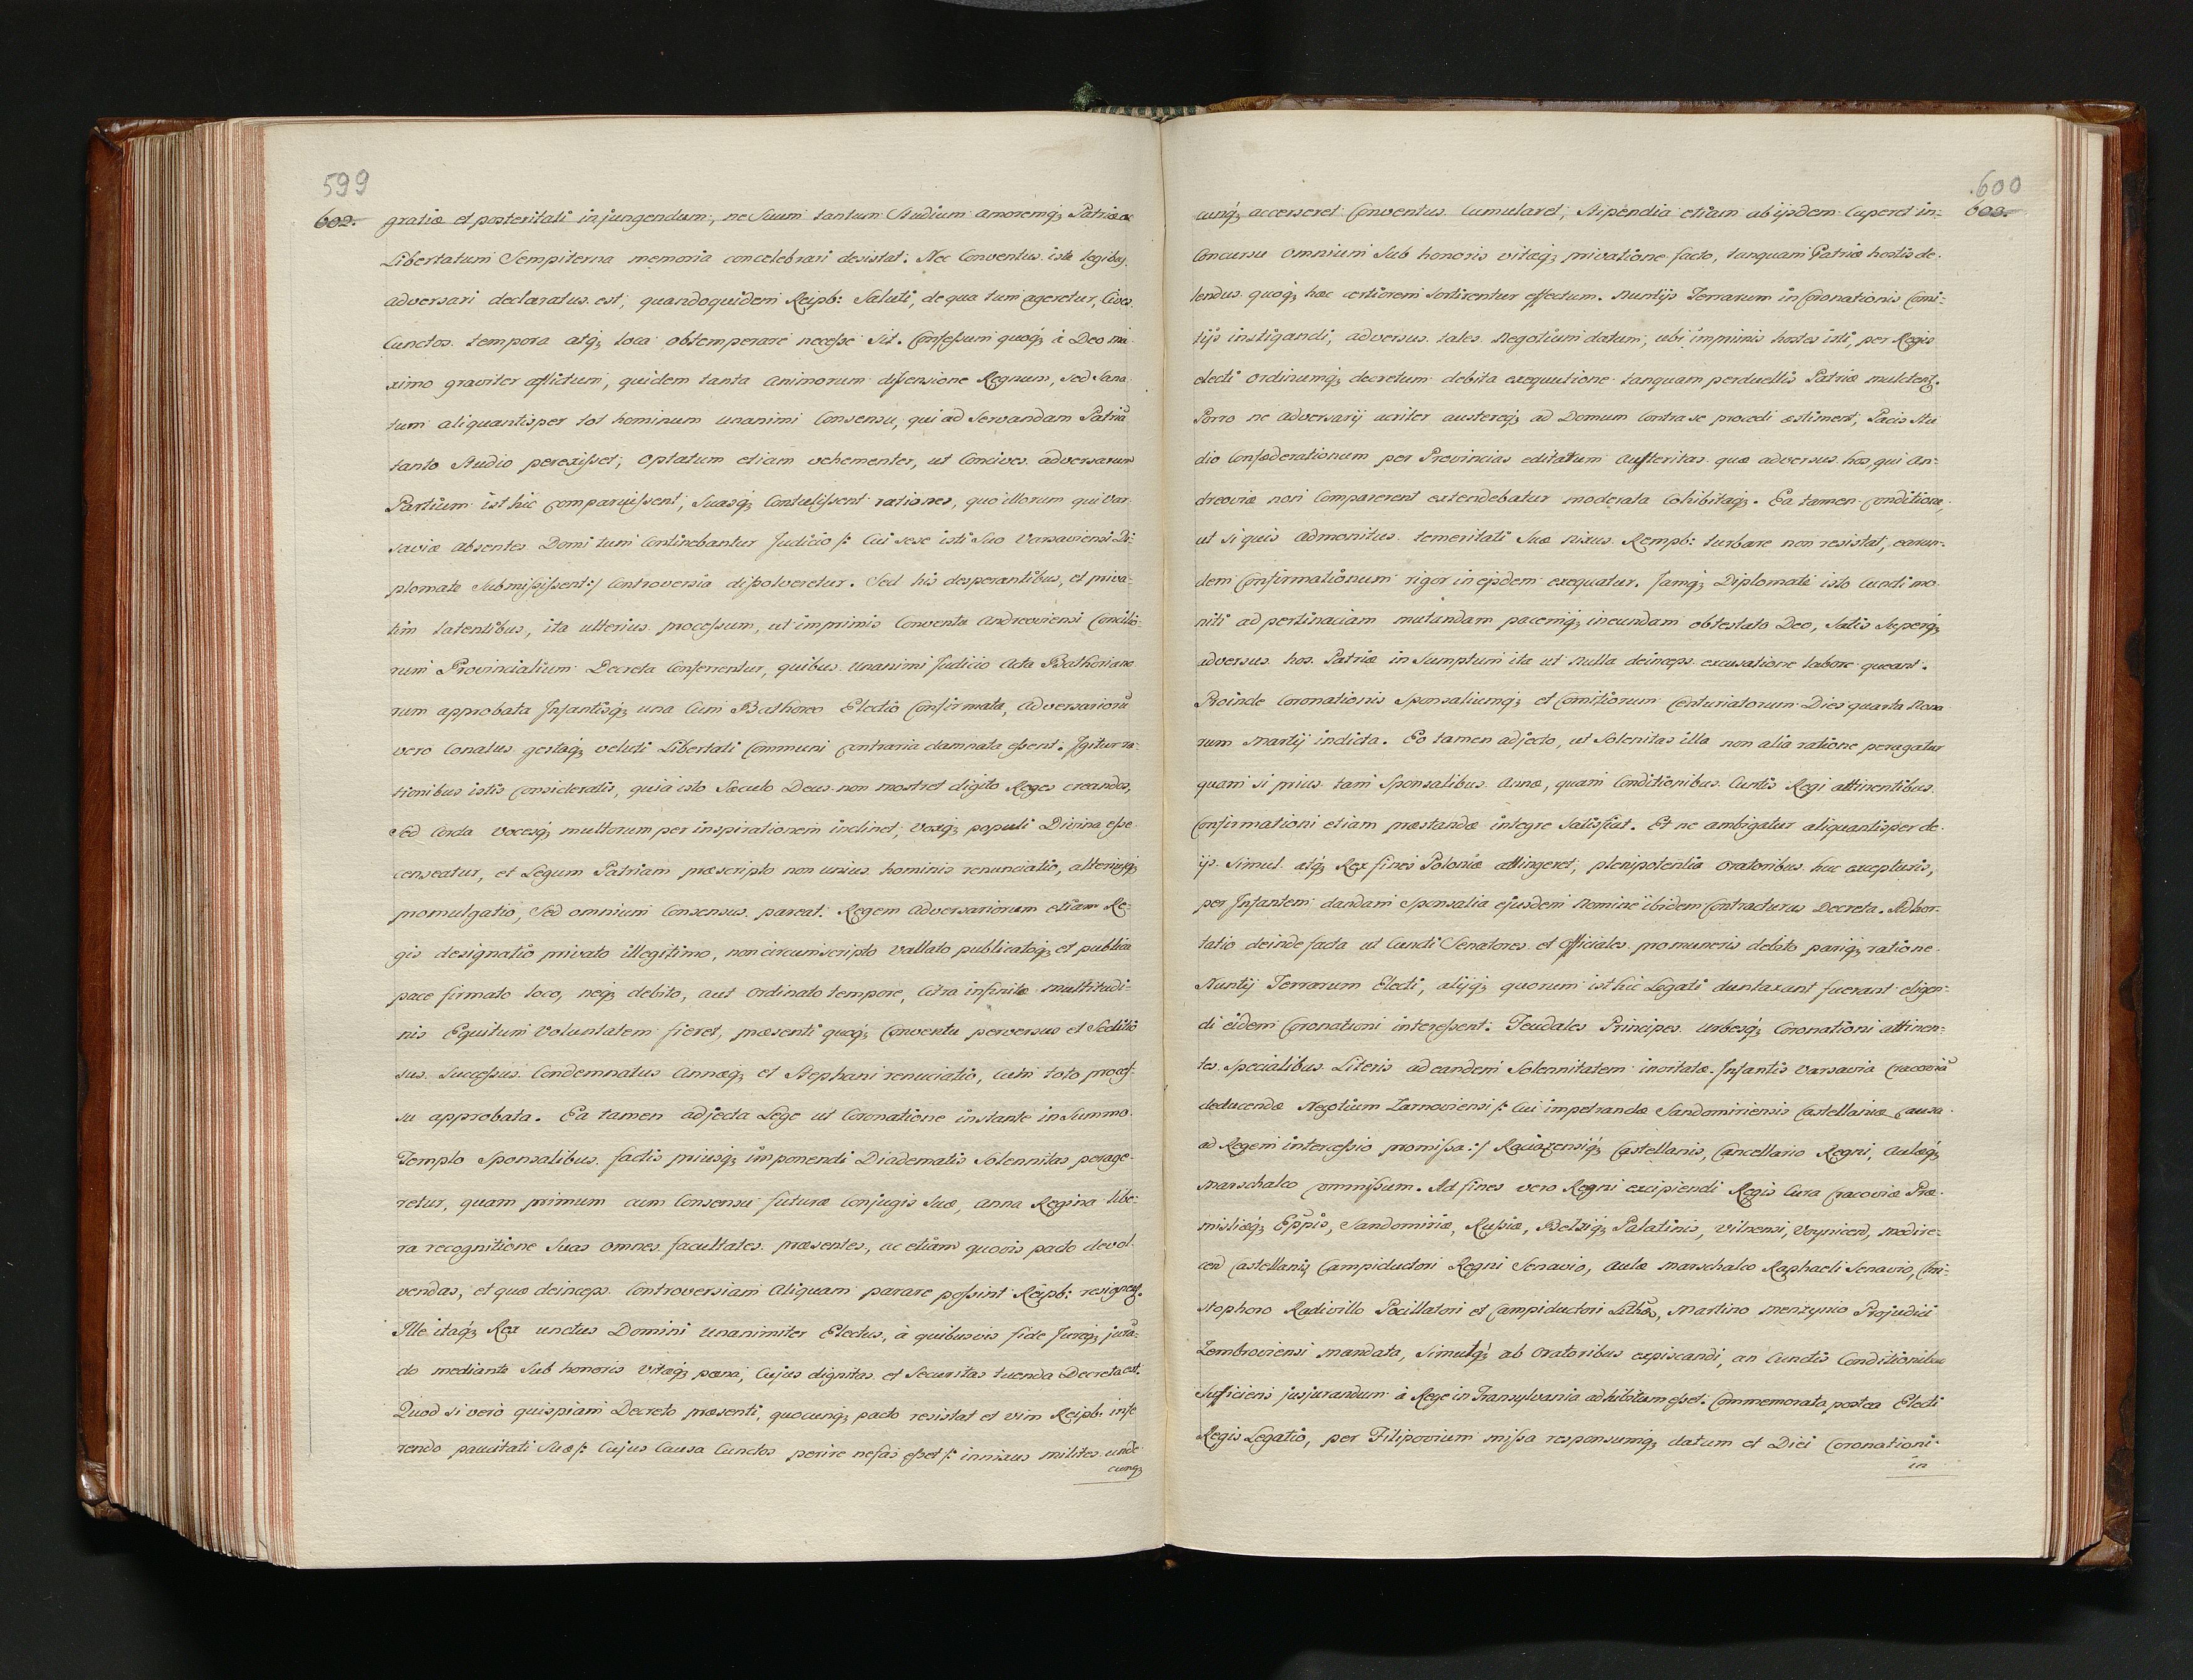 599
602.
gratiæ et posteritati injungendum, ne Suum tantum Studium amoremq; Patriæ ac
Libertatum Sempiterna memoria concelebrari desistat. Nec Conventus iste legibus
adversari declaratus est, quandoquidem Reipb: Saluti, de qua tum ageretur, Cives
Cunctos tempora atq; loca obtemperare necesse sit. Confessum quoq; à Deo ma-
ximo graviter aflictum, quidem tanta animorum dissensione Regnum, sed Sana-
tum aliquantisper tot hominum unanimi Consensu, qui ad Servandam Patriã
tanto Studio perexisset, Optatum etiam vehementer, ut Concives adversarum
Partium isthic comparuissent, Suasq; Contulissent rationes, quo illorum qui Var-
saviæ absentes Domi tum Continebantur Judicio /: Cui sese isti Suo Varsaviensi Di-
plomate Submisissent:/ Controversia dissolveretur. Sed his desperantibus, et priva-
tim latentibus, ita ulterius processum, ut imprimis Conventa Andreoviensi Concilio-
rum Provincialium Decreta Conferrentur, quibus unanimi Judicio Acta Bathoriano-
rum approbata Infantisq; una Cum Bathoreo Electio Confirmata, adversariorũ
vero Conatus gestaq; veluti Libertati Communi Contraria damnata essent. Igitur ra-
tionibus istis Consideratis, quia isto Sæculo Deus non mostret digito Reges creandos,
Sed Corda vocesq; multorum per inspirationem inclinet, Voxq; populi Divina esse
censeatur, et Legum Patriam præscripto non unius hominis renunciatio, alteriusq;
promulgatio, Sed omnium Consensus pareat. Regem adversariorum etiam Re-
gis designatio privato illegitimo, non circumscripto Vallato publicatoq; et publica
pace firmato loco, neq; debito, aut Ordinato tempore, Citra infinitæ multitudi-
nis Equitum Voluntatem fieret, præsenti quoq; Conventu perversus et Seditio
sus Successus Condemnatus Annæq; et Stephani renuciatio, Cum toto proces-
su approbata. Ea tamen adjecta Lege ut Coronatione instante in Summo
Templo Sponsalibus factis priusq; imponendi Diadematis Solennitas perage-
retur, quam primum cum Consensu futuræ Conjugis Suæ, Anna Regina libe-
ra recognitione Suas omnes facultates præsentes, ac etiam quovis pacto devol-
vendas, et quæ deinceps Controversiam Aliquam parare possint Reipb: resignet.
Ille itaq; Rex unctus Domini Unanimiter Electus, à quibusvis fide Juraq; jurã-
do mediante Sub honoris Vitæq; pæna, Cujus dignitas et Securitas tuenda Decreta est.
Quod si verò quispiam Decreto præsenti, quocunq; pacto resistat et vim Reipb: infe
rendo paucitati Suæ /: Cujus Causa Cunctos perire nefas esset /: innixus milites unde
cunq;
600
603.
cunq; accerseret Conventus Cumularet, Stipendia etiam ab ijsdem Caperet in-
Concursu Omnium Sub honoris vitæq; privatione facto, tanquam Patriæ hostis de-
lendus quoq; hæc certiorem Sortirentur effectum. Nuntijs Terrarum in Coronationis Comi-
tijs instigandi, adversus tales Negotium datum, ubi imprimis hostes isti, per Regis
electi Ordinumq; decretum debita exequutione tanquam perduellis Patriæ mulctent.
Porro ne adversarij acriter austereq; ad Domum Contra se procedi æstiment, Pacis Stu
dio Confæderationum per Provincias editarum Austeritas quæ adversus hos, qui An-
dreoviæ non Comparerent extendebatur moderata Cohibitaq;. Ea tamen Conditione,
ut si quis admonitus temeritati Suæ nixus Rempb: turbare non resistat, earun-
dem Confirmationum rigor in ejsdem exequatur. Jamq; Diplomate isto Cuncti mo-
niti ad pertinaciam mutandam pacemq; ineundam obtestato Deo, Satis Superq;
adversus hos Patriæ in Sumptum ita ut Nulla deinceps excusatione labore queant.
Proinde Coronationis Sponsaliumq; et Comitiorum Centuriatorum Dies quarta Nona
rum Martij indicta. Eo tamen adjecto, ut Solenitas illa non alia ratione peragatur
quam si prius tam Sponsalibus Annæ, quam Conditionibus Cuntis Regi attinentibus
Confirmationi etiam præstandæ integre Satisfiat. Et ne ambigatur aliquantisper de
ijs Simul atq; Rex fines Poloniæ attingeret, plenipotentia Oratoribus huc excepturis,
per Infantem dandam Sponsalia ejusdem Nomine ibidem Contracturus Decreta. Adhor-
tatio deinde facta ut Cuncti Senatores et Officiales pro muneris debito pariq; ratione
Nuntij Terrarum Electi, alijq; quorum isthic Legati duntaxant fuerant eligen-
di eidem Coronationi interessent. Feudales Principes Urbesq; Coronationi attinen-
tes Specialibus Literis ad eandem Solennitatem invitatæ. Infantis Varsavia Cracoviã
deducendæ Negotium Zarnoviensi /: Cui impetrandæ Sandomiriensis Castellaniæ Causa
ad Regem intercessio promissa:/ Raciazensiq; Castellanis, Cancellario Regni, Aulæq;
Marschalco Commissum. Ad fines vero Regni excipiendi Regis Cura Cracoviæ Præ-
misliæq; Eppis, Sandomiriæ, Russiæ, Belziq; Palatinis, Vilnensi, Voynicen, Medire-
cen Castellanis, Campiductori Regni Senavio, Aulæ Marschalco Raphaeli Senavio, Chri-
stophoro Radivillo Pocillatori et Campiductori Lithæ, Martino Projudici
Zembroviensi Mandata, Simulq; ab Oratoribus expiscandi, an Cunctis Conditionibus
Sufficiens jusjurandum à Rege in Transylvania adhibitum esset. Commemorata postea Electi
Regis Legatio, per Filipovium missa responsumq; datum et Diei Coronationi
in